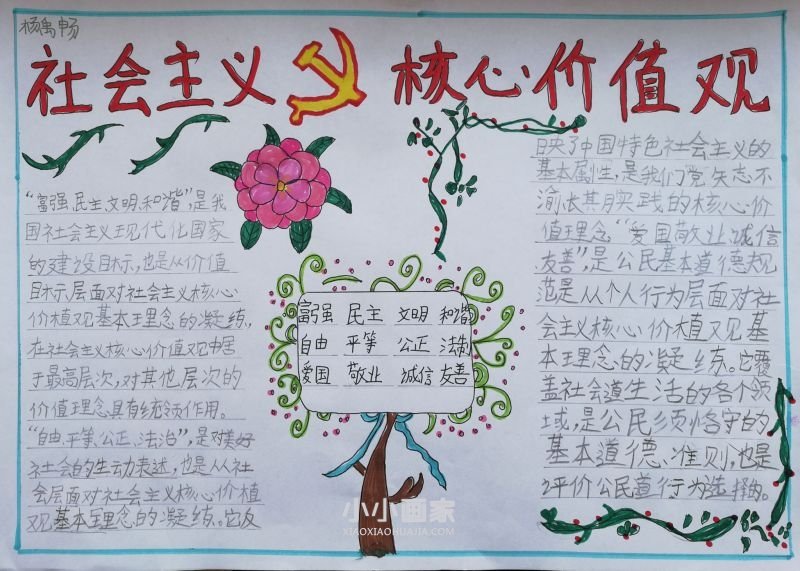 杨禹畅
社会主义 核心价值观
"富强、民主、文明、和谐",是我
国社会主义现代化国家
的建设目标,也是从价值
目标层面对社会主义核心
价值观基本理念的凝练,
在社会主义核心价值观中居
于最高层次,对其他层次的
价值理念具有统领作用。
"自由、平等、公正、法治",是对美好
社会的生动表述,也是从社
会层面对社会主义核心价值
观基本理念的凝练。它反
映了中国特色社会主义的
基本属性,是我们党矢志不
渝长其月实践的核心价
值理念"爱国敬业、诚信
友善",是公民基本道德规
范是从个人行为层面对社
会主义核心价值观基
本理念的凝练。它覆
盖社会道生活的各个领
域,是公民须恪守的
基本道德准则,也是
评价公民道行为选择的。
富强 民主 文明 和谐
自由 平等 公正 法制
爱国 敬业 诚信 友善
小小画家
XIAOXIAOHUAJIA.COM